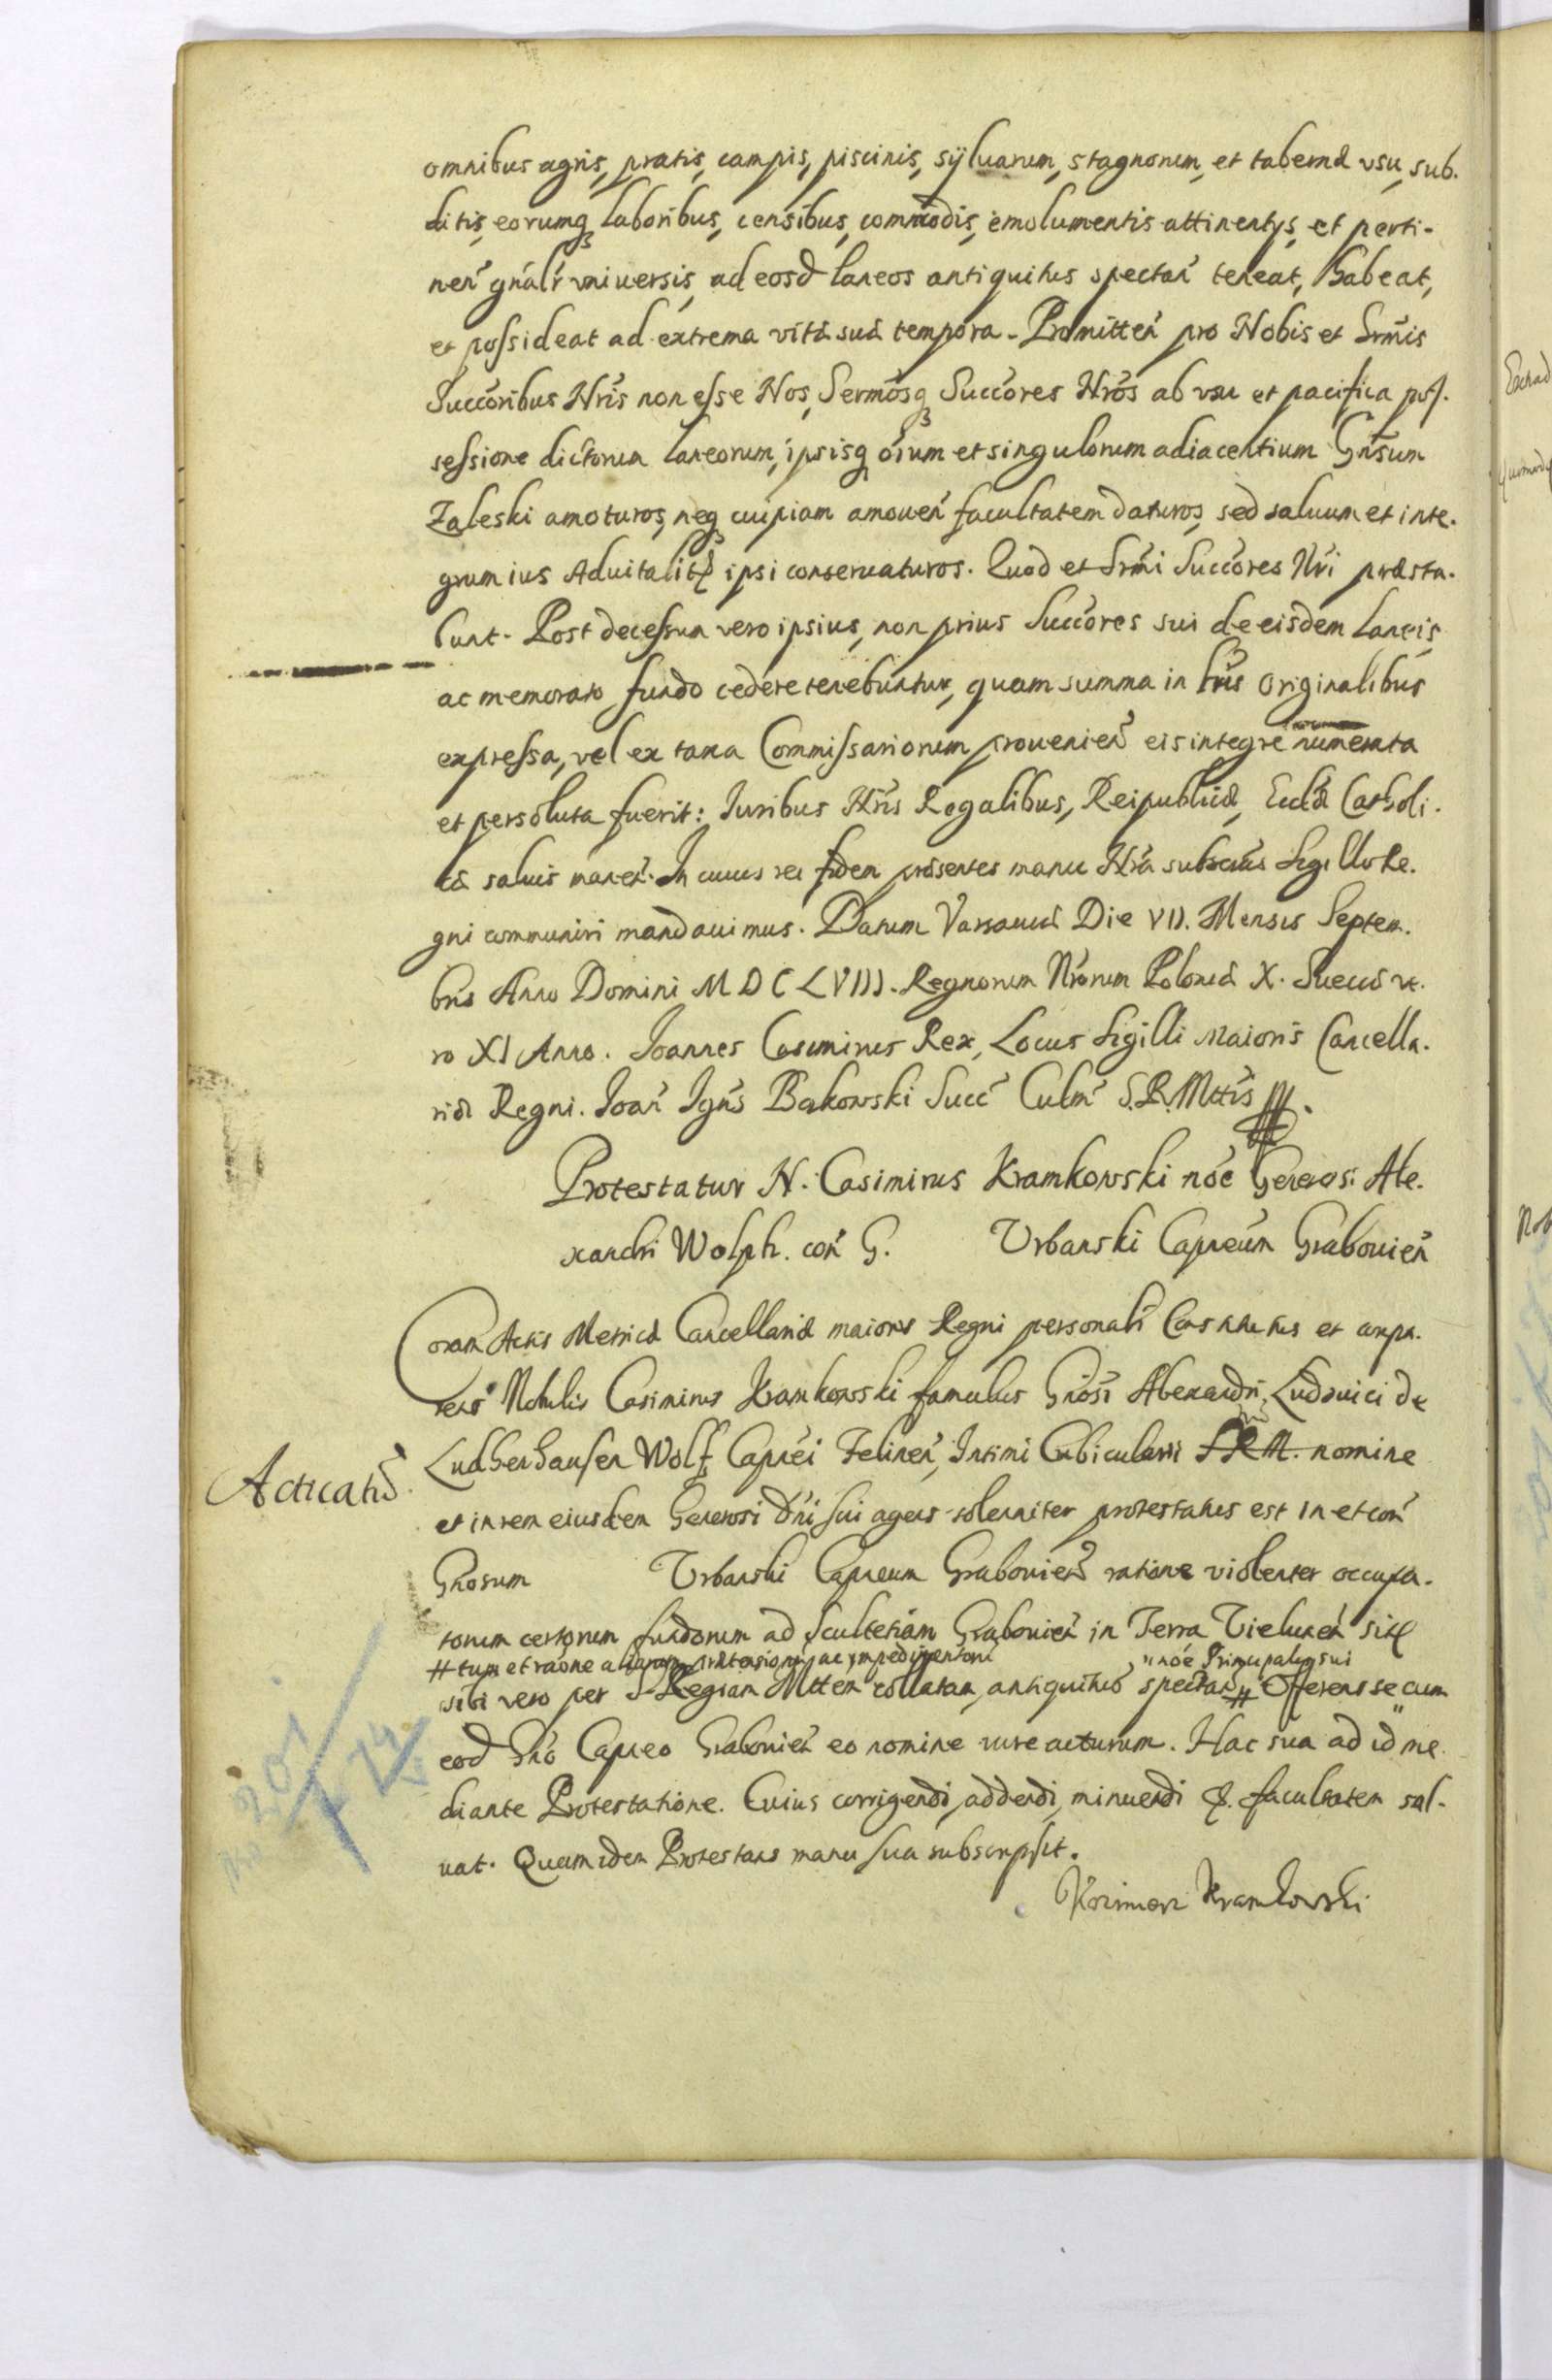 omnibus agris, pratis, campis, piscinis, sÿluarum, stagnorum, et tabernæ vsu, sub.
ditis, eorumq₃ laboribus, censibus, commodis, emolumentis attinentys, et perti-
neñ gnalr vniuersis, ad eosd laneos antiquitus spectañ teneat, habeat,
et possideat ad extrema vitæ suæ tempora. Promitteñ pro Nobis et Srmis
Succoribus Nris non esse Nos, Sermosq₃ Succores Nros ab vsu et pacifica pos.
sessione dictorum laneorum, ipsisq₃ oium et singulorum adiacentium Gnsum
Zaleski amoturos, neq₃ cuipiam amoueñ facultatem daturos, sed saluum et inte.
grum ius Aduitalitt ipsi conseruaturos. Quod et Srmi Succores Nri præsta.
bunt. Post decessum vero ipsius, non prius Succores sui de eisdem laneis,
ac memorato fundo cedere tenebuntur, quam summa in lris Originalibus
expressa, vel ex taxa Commissariorum prouenieñ eis integre numerata
et persoluta fuerit: Iuribus Nris Regalibus, Reipublicæ, Ecclæ Catholi.
cæ saluis maneñ. In cuius rei fidem præsentes manu Nra subscrias Sigillo Re.
gni communiri mandauimus. Datum Varsauiæ Die VII. Mensis Septem.
bris Anno Domini MDCLVIII. Regnorum Nrorum Poloniæ X. Sueciæ ve.
ro XI Anno. Joannes Casimirus Rex, Locus Sigilli Maioris Cancella.
riæ Regni. Joañ Igns Bąkowski Succ Culm S.R.Mttis.
Protestatur N. Casimirus Kramkowski noe Generosi Ale.
xandri Wolph. con G. Vrbanski Capneum Grabouieñ
Coram Actis Metricæ Cancellariæ maioris Regni personalr Constitutus et compa.
rens Nobilis Casimirus Kramkowski famulus Gnosi Alexandri, Ludouici de
Ludhenhausen Wolf, Capnei Felineñ, Intimi Cubicularii SRM. nomine
Acticatio.
et in rem eiusdem Generosi Dni sui agens solenniter protestatus est in et con
Gnosum Vrbanski Capneum Grabouieñ ratione violenter occupa.
torum certorum fundorum ad Scultetiam Grabouieñ in Terra Vieluneñ sitt
# tum et raone aliarum prætensionu ac impedimentoru " noe Principalis sui
sibi vero per S. Regiam Mttem collatam, antiquitus spectañ # Offerens se cum
eod Gno Capneo Grabouieñ eo nomine iure acturum. Hac sua ad id me
diante Protestatione. Cuius corrigendi, addendi, minuendi &. facultatem sal.
uat. Quam idem Protestans manu sua subscripsit.
Kazimierz Kramkowski